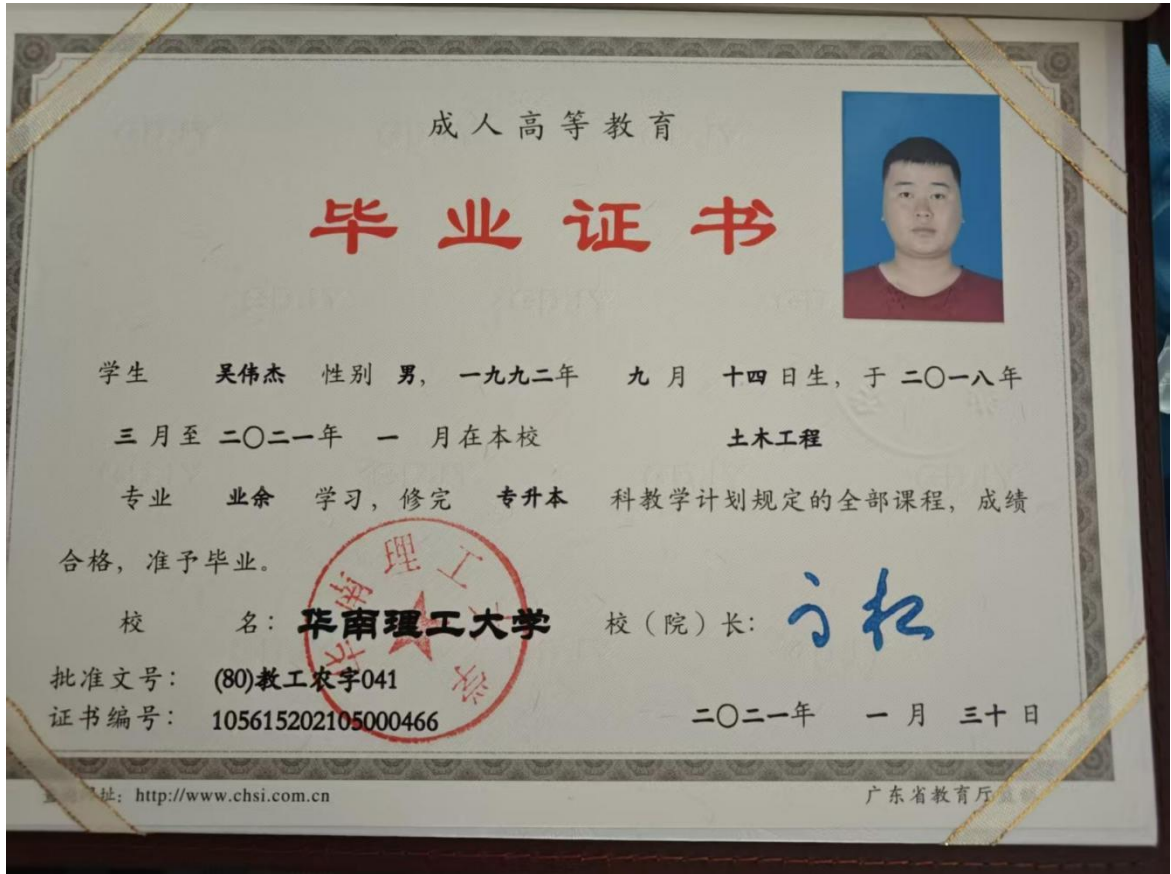 成人高等教育
毕业证书
学生 吴伟杰 性别 男，一九九二年 九 月 十四 日生，于 二〇一八年
三 月至 二〇二一年 一 月在本校 土木工程
专业 业余 学习，修完 专升本 科教学计划规定的全部课程，成绩
合格，准予毕业。
校 名：华南理工大学 校（院）长：
华南理工大学
批准文号：(80)教工农字041
证书编号：105615202105000466 二〇二一年 一 月 三十 日
网址：http://www.chsi.com.cn 广东省教育厅